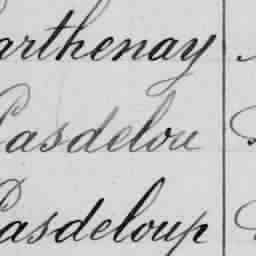 arthenay
Pasdelou
Pasdeloup